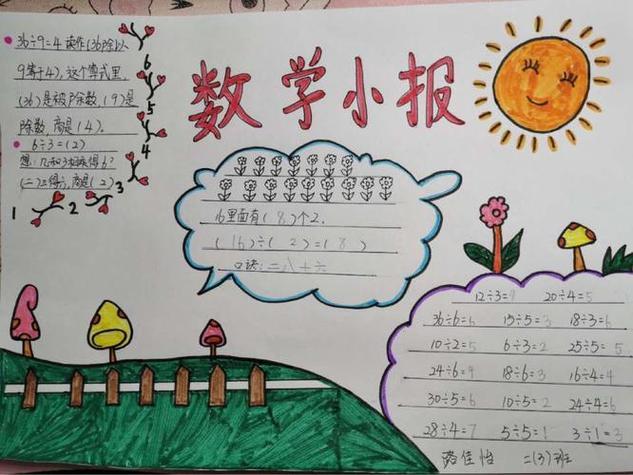 数学小报
36÷9=4 读作(36除以
9等于4),这个算式里
(36)是被除数,(9)是
除数,商是(4)。
6÷3=(2)
想:几和3相乘得6?
(二)三得六,商是(2)
1 2 3 4 5 6
16里面有(8)个2。
(16)÷(2)=(8)
口诀:二八十六
12÷3= 20÷4=5
36÷6=6 15÷5=3 18÷3=6
10÷2=5 6÷3=2 25÷5=5
24÷6=9 18÷6=3 16÷4=4
30÷5=6 10÷5=2 24÷4=6
28÷4=7 5÷5=1 3÷1=3
佳怡 二(3)班